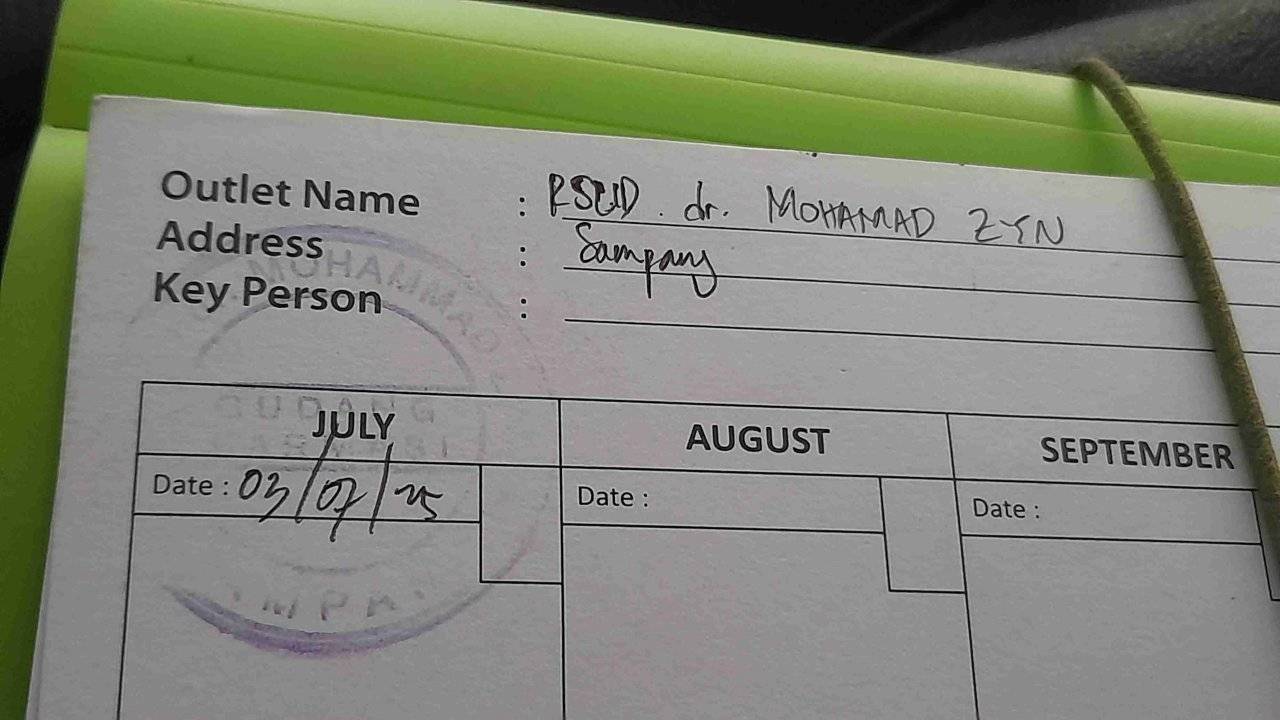 Outlet Name : RSUD. dr. MOHAMAD ZYN
Address : Sampang
Key Person :
MOHAMMAD
GUDANG
JULY AUGUST SEPTEMBER
Date : 03/07/25 Date : Date :